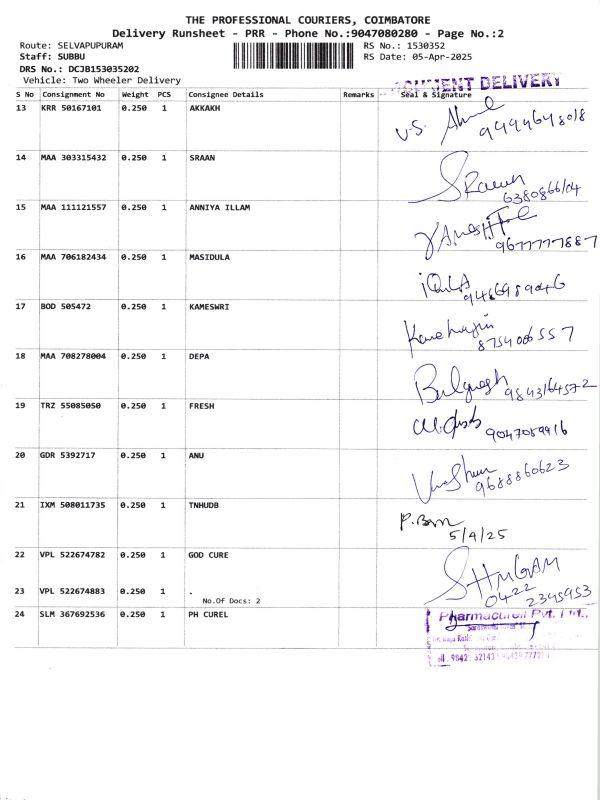 THE PROFESSIONAL COURIERS, COIMBATORE
Delivery Runsheet - PRR - Phone No.:9047080280 - Page No.:2
Route: SELVAPUPURAM RS No.: 1530352
Staff: SUBBU RS Date: 05-Apr-2025
DRS No.: DCJB153035202
Vehicle: Two Wheeler Delivery
DELIVERY
S No Consignment No Weight PCS Consignee Details Remarks Seal & Signature
13 KRR 50167101 0.250 1 AKKAKH
9444648018
14 MAA 303315432 0.250 1 SRAAN
6380866104
15 MAA 111121557 0.250 1 ANNIYA ILLAM
9677777887
16 MAA 706182434 0.250 1 MASIDULA
9486989046
17 BOD 505472 0.250 1 KAMESWRI
8754006557
18 MAA 708278004 0.250 1 DEPA
9843164572
19 TRZ 55085050 0.250 1 FRESH
9047059916
20 GDR 5392717 0.250 1 ANU
9688860623
21 IXM 508011735 0.250 1 TNHUDB
5/4/25
22 VPL 522674782 0.250 1 GOD CURE
0422
2345953
23 VPL 522674883 0.250 1 .
No.Of Docs: 2
24 SLM 367692536 0.250 1 PH CUREL
Pvt.